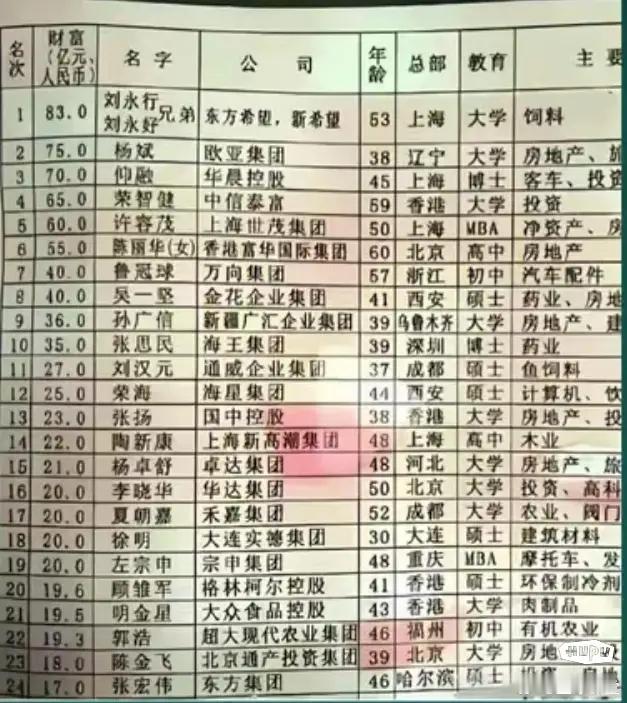 名次 财富(亿元、人民币) 名字 公司 年龄 总部 教育 主要
1 83.0 刘永行 刘永好 兄弟 东方希望，新希望 53 上海 大学 饲料
2 75.0 杨斌 欧亚集团 38 辽宁 大学 房地产、旅
3 70.0 仰融 华晨控股 45 上海 博士 客车、投资
4 65.0 荣智健 中信泰富 59 香港 大学 投资
5 60.0 许容茂 上海世茂集团 50 上海 MBA 净资产、房
6 55.0 陈丽华(女) 香港富华国际集团 60 北京 高中 房地产
7 40.0 鲁冠球 万向集团 57 浙江 初中 汽车配件
8 40.0 吴一坚 金花企业集团 41 西安 硕士 药业、房地
9 36.0 孙广信 新疆广汇企业集团 39 乌鲁木齐 大学 房地产、建
10 35.0 张思民 海王集团 39 深圳 博士 药业
11 27.0 刘汉元 通威企业集团 37 成都 硕士 鱼饲料
12 25.0 荣海 海星集团 44 西安 硕士 计算机、饮
13 23.0 张扬 国中控股 38 香港 大学 房地产、投
14 22.0 陶新康 上海新高潮集团 48 上海 高中 木业
15 21.0 杨卓舒 卓达集团 48 河北 大学 房地产、旅
16 20.0 李晓华 华达集团 50 北京 大学 投资、高科
17 20.0 夏朝嘉 禾嘉集团 52 成都 大学 农业、阀门
18 20.0 徐明 大连实德集团 30 大连 硕士 建筑材料
19 20.0 左宗申 宗申集团 48 重庆 MBA 摩托车、发
20 19.6 顾雏军 格林柯尔控股 41 香港 硕士 环保制冷剂
21 19.5 明金星 大众食品控股 43 香港 大学 肉制品
22 19.3 郭浩 超大现代农业集团 46 福州 初中 有机农业
23 18.0 陈金飞 北京通产投资集团 39 北京 大学 房地
24 17.0 张宏伟 东方集团 46 哈尔滨 硕士 投资、房地
hupu